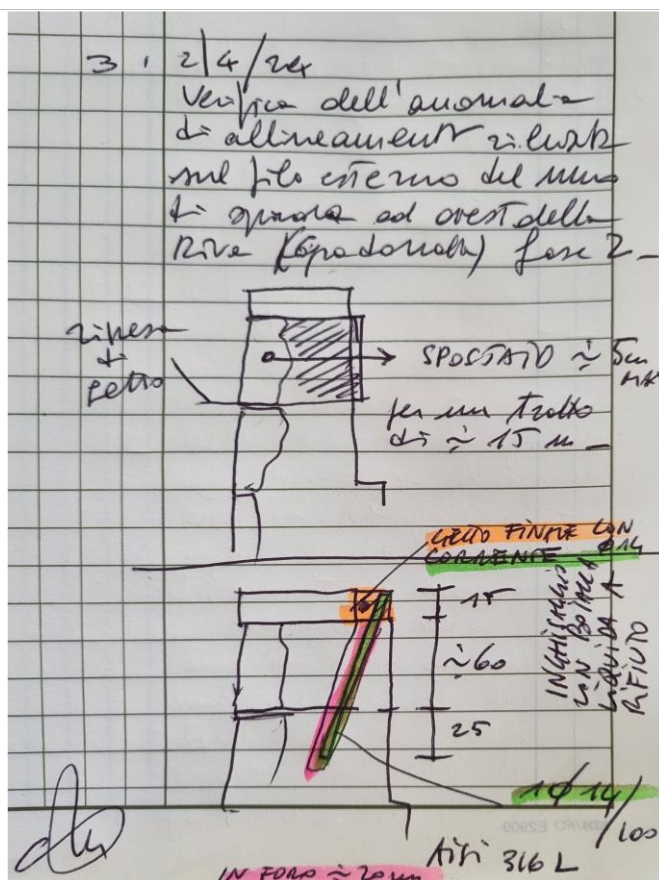 3 . 2/4/24
Verifica dell'anomalia
di allineamento rilevata
sul filo esterno del muro
di sponda ad ovest della
Riva fase 2 -
ripresa
di
getto
SPOSTATO ≈ 5cm
MAX
per un tratto
di ≈ 15 m -
GETTO FINALE CON
CORRENTE Ø14
15
≈60
25
INGHISAGGIO
CON BOIACCA
LIQUIDA A
RIFIUTO
1Ø14/
/100
AISI 316L
IN FORO ≈ 20mm
EDURO E2909